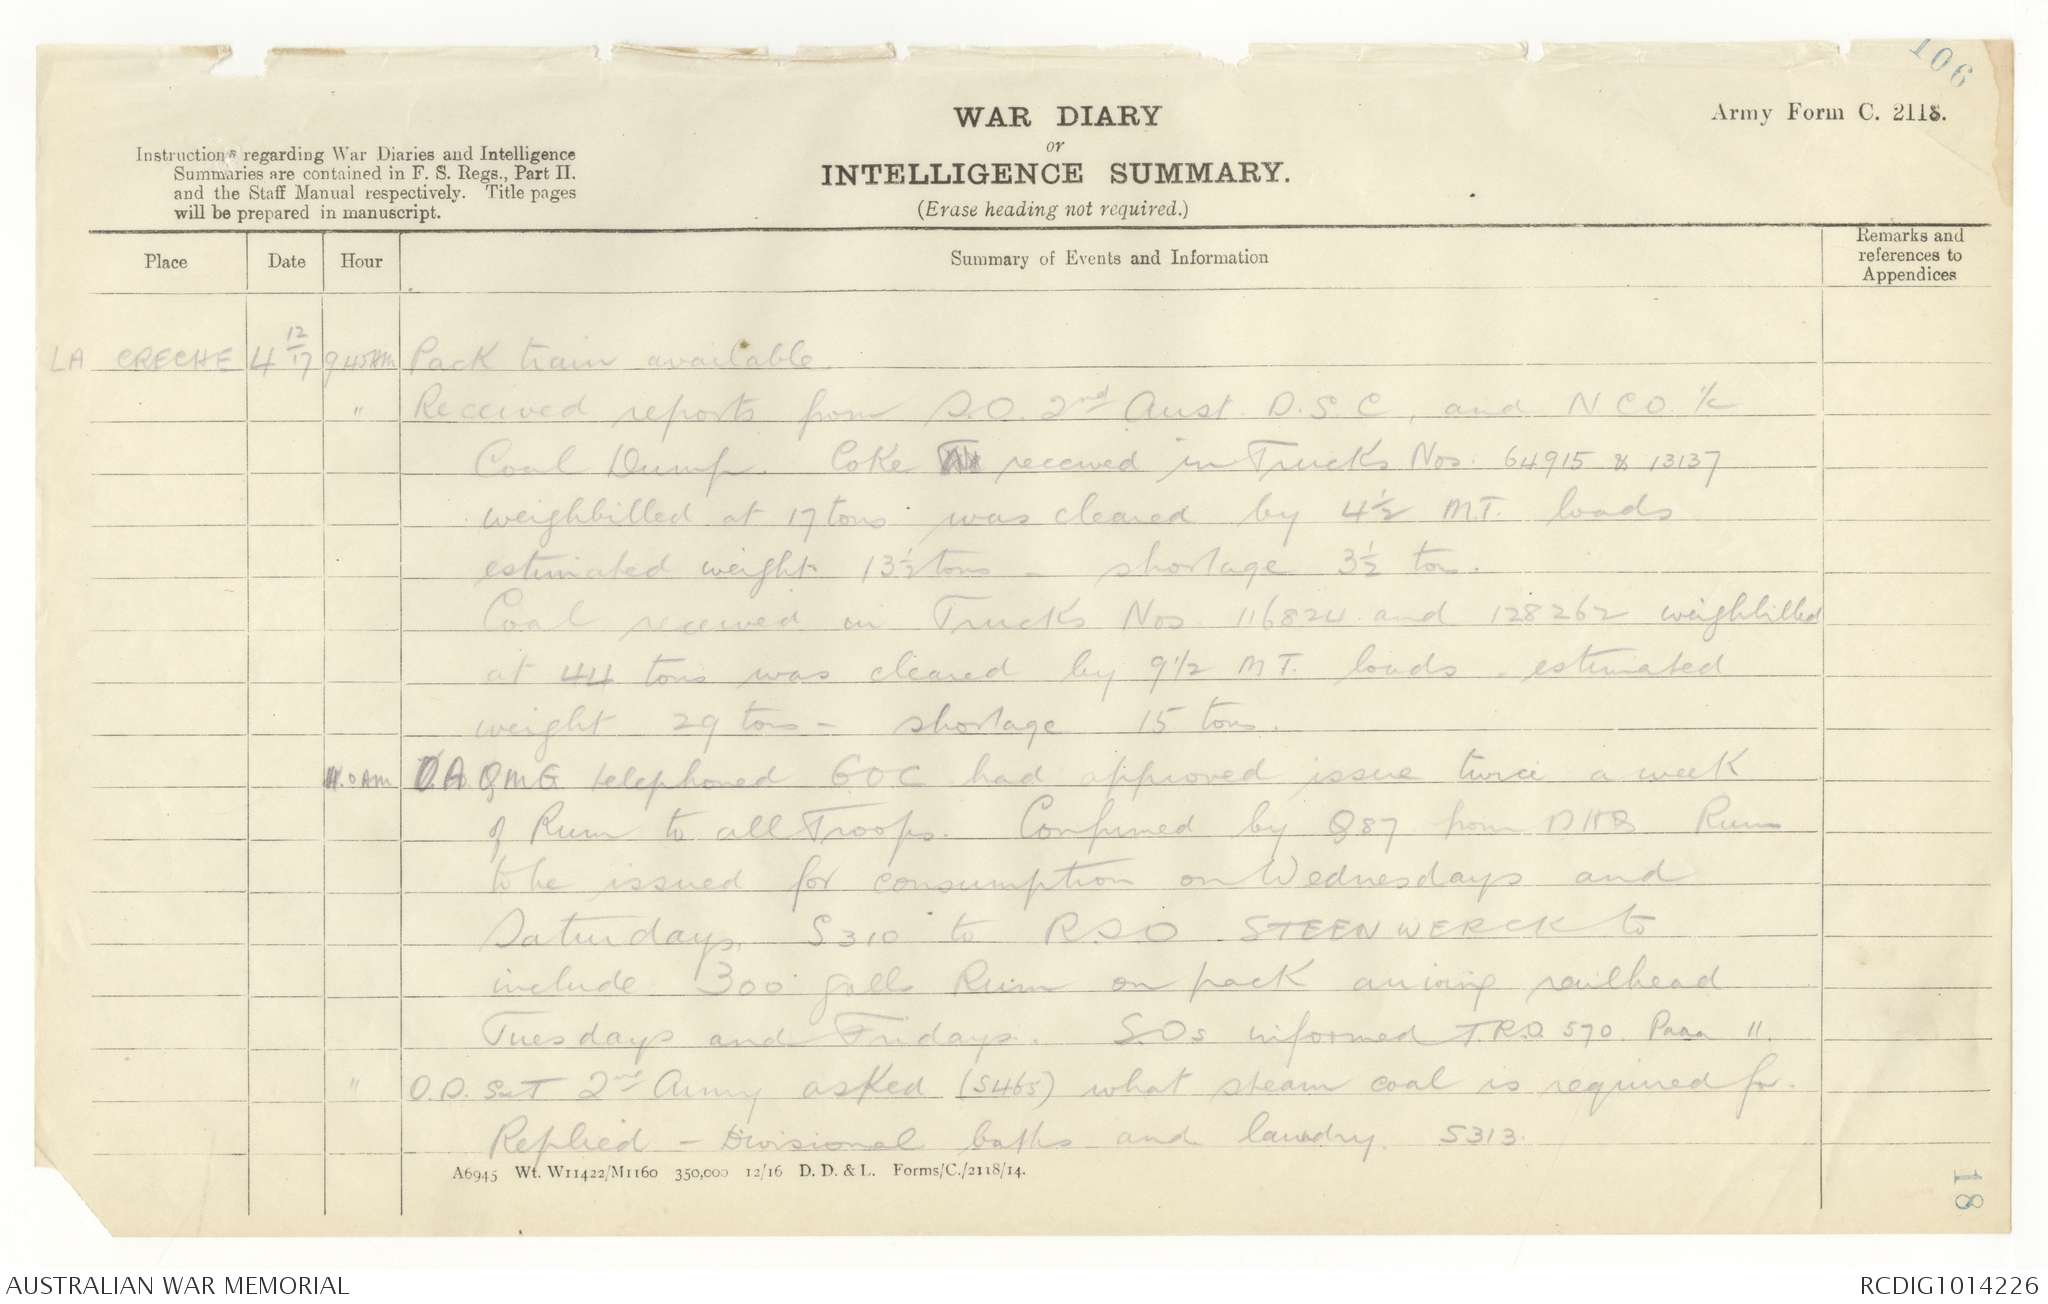 106
WAR DIARY
or
INTELLIGENCE SUMMARY.
(Erase heading not required.)
Army Form C. 2118.
Instructions regarding War Diaries and Intelligence
Summaries are contained in F. S. Regs., Part II.
and the Staff Manual respectively. Title pages
will be prepared in manuscript.
Place Date Hour Summary of Events and Information Remarks and references to Appendices
LA CRECHE 4 12/17 9 45AM Pack train available.
" Received reports from S.O. 2nd Aust. D.S.C, and NCO i/c
Coal Dump. Coke received in Trucks Nos. 64915 & 13137
weighbilled at 17 tons was cleared by 4½ M.T. loads
estimated weight 13½ tons - shortage 3½ tons.
Coal received in Trucks Nos. 116824 and 128262 weighbilled
at 44 tons was cleared by 9½ M.T. loads - estimated
weight 29 tons - shortage 15 tons.
11.0AM D.A.QMG telephoned GOC had approved issue twice a week
of Rum to all Troops. Confirmed by Q87 from DHQ Rum
to be issued for consumption on Wednesdays and
Saturdays. S310 to R.S.O STEENWERCK to
include 300 galls Rum on pack arriving railhead
Tuesdays and Fridays. S.Os informed T.R.O. 570. Para 11.
" D.D. S&T 2nd Army asked (S465) what steam coal is required for.
Replied - Divisional baths and laundry. S313.
A6945 Wt. W11422/M1160 350,000 12/16 D. D. & L. Forms/C./2118/14.
18
AUSTRALIAN WAR MEMORIAL
RCDIG1014226